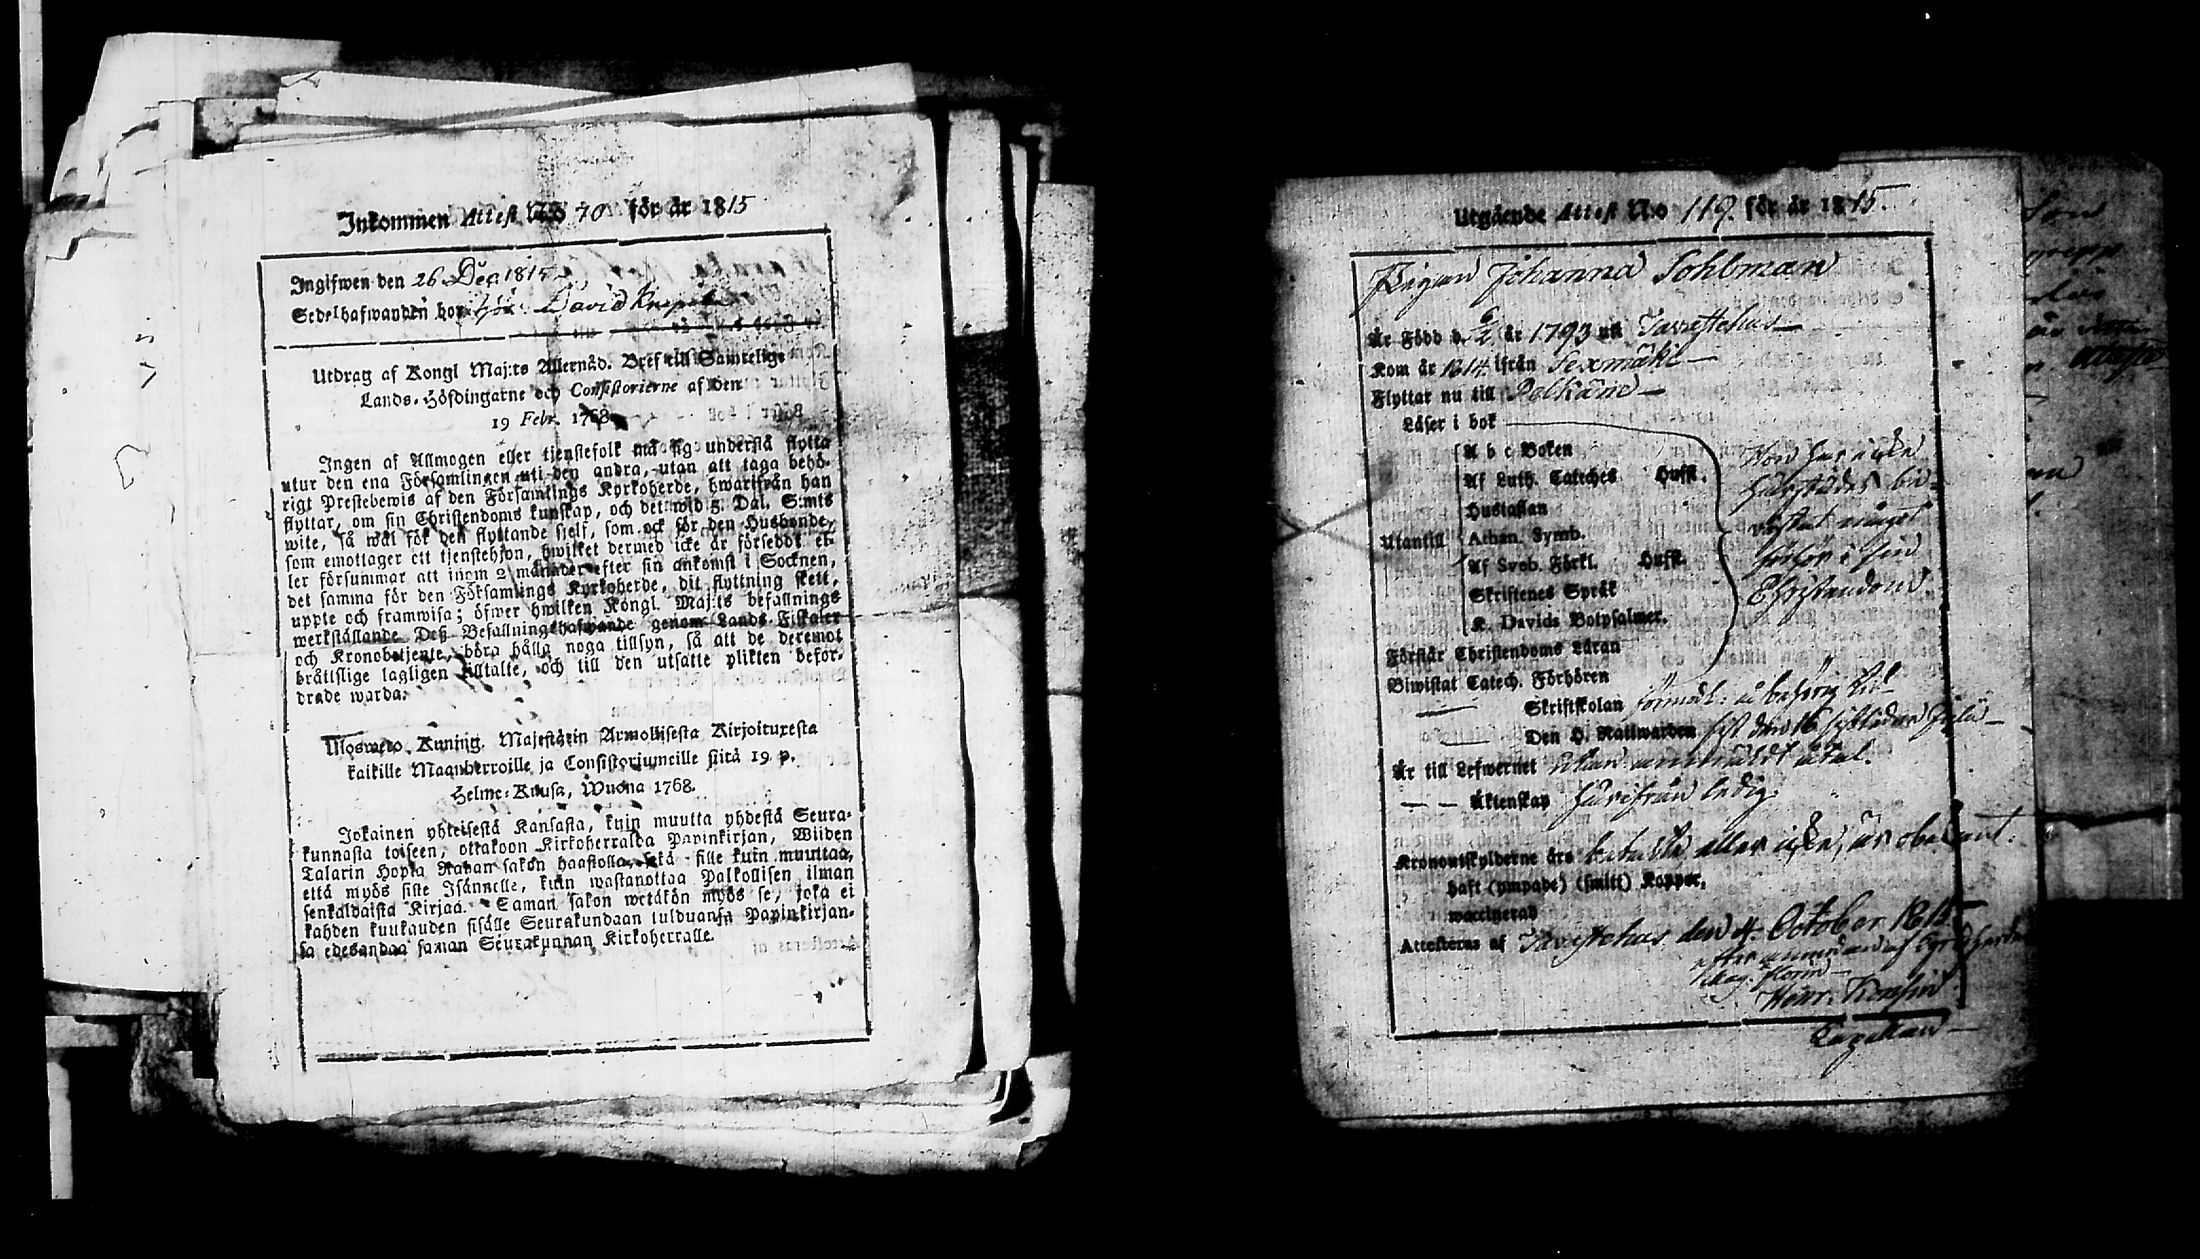 Inkommen Attest N:o 70 för år 1815
Ingifwen den 26 Dec 1815
Sedelhafwanden hos David
Utdrag af Kongl Maj:ts Allernåd. Bref till Samtelige
Lands-Höfdingarne och Consistorierne af den
19 Febr. 1768.
Ingen af Allmogen eller tjenstefolk må sig understå flytta
utur den ena Församlingen uti den andra, utan att taga behö-
rigt Prestebewis af den Församlings Kyrkoherde, hwarifrån han
flyttar, om sin Christendoms kunskap, och det wid 5. Dal. S:mts
wite, så wäl för den flyttande sjelf, som ock för den Husbonde,
som emottager ett tjenstehjon, hwilket dermed icke är försedt el-
ler försummar att inom 2 månader efter sin ankomst i Socknen,
det samma för den Församlings Kyrkoherde, dit flyttning skett,
uppte och framwisa; öfwer hwilken Kongl. Maj:ts befallnings
werkställande Deß Befallningshafwande genom Lands-Fiskaler
och Kronobetjente, böra hålla noga tillsyn, så att de deremot
bråttslige lagligen tilltalte, och till den utsatte plikten beför-
drade warda.
Ulosweto Kuning. Majestätin Armollisesta Kirjoituxesta
kaikille Maanherroille ja Consistoriumeille siitä 19. p.
Helme-Kuusa, Wuona 1768.
Jokainen yhteisestä Kansasta, kuin muutta yhdestä Seura-
kunnasta toiseen, ottakoon Kirkoherralda Papinkirjan, Wiiden
Talarin Hopia Rahan sakon haastolla, sekä sille kuin muuttaa,
että myös sille Isännelle, kuin wastanottaa Palkollisen ilman
senkaldaista Kirjaa. Saman sakon wetäkön myös se, joka ei
kahden kuukauden sisälle Seurakundaan tulduansa Papinkirjan-
sa edesandaa saman Seurakunnan Kirkoherralle.
Utgående Attest N:o 119. för år 1815.
Pigan Johanna Sohlman
Är Född d. 6/2 år 1793 uti Tavastehus
Kom år 1814 ifrån Sexmäki
Flyttar nu till Pelkäne
Läser i bok
A b c Boken
Af Luth. Cateches Hufst.
Hustaflan
Utantill Athan. Symb.
Af Sveb. Förkl. Hufst.
Skriftenes Språk
K. Davids Botpsalmer.
Hon har icke
härstädes bi-
vistat något
förhör i sin
Christendom.
Förstår Christendoms Läran
Biwistat Catech. Förhören
Skriftskolan
Den H. Nattwarden sist den 16
Är till Lefwernet utan
Äktenskap härifrån ledig.
Kronoutskylderne äro betalda eller icke, är obekant.
haft (ympade) (smitt) Koppor,
waccinerad
Attesteras af Tavastehus den 4. October 1815
Henr.